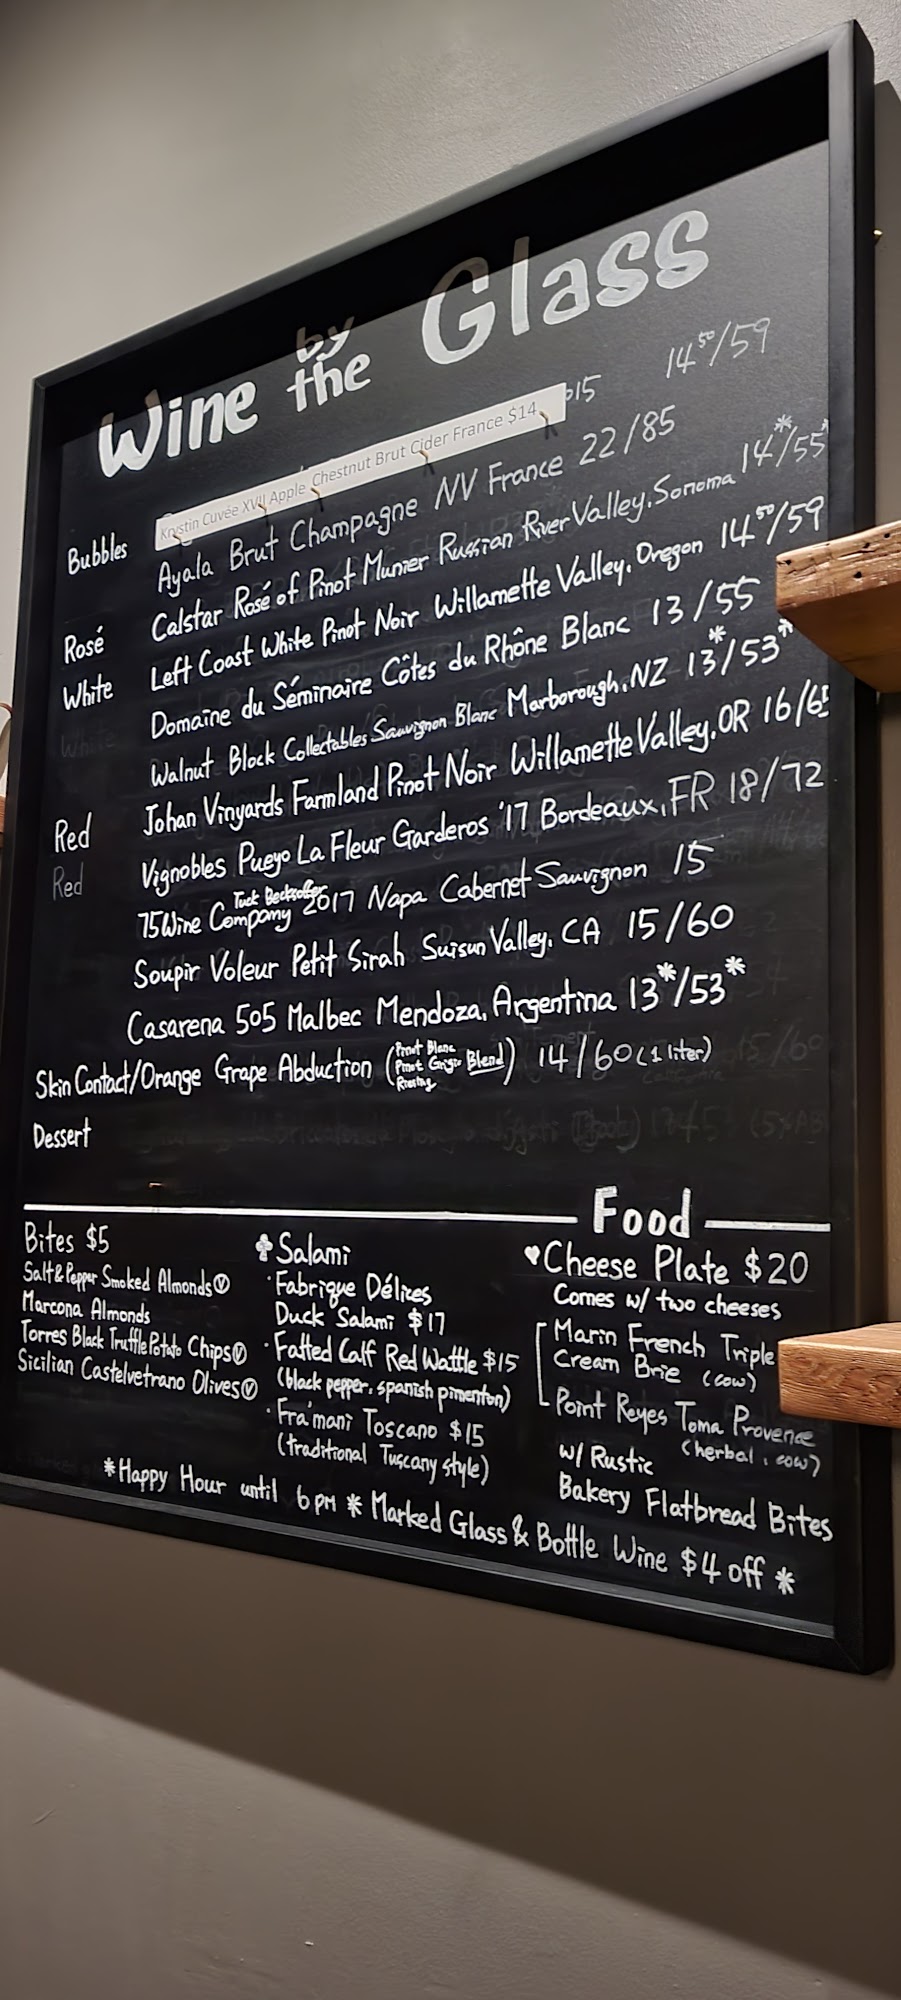 Wine by the Glass
14⁵⁰/59
Krystin Cuvée XVII Apple Chestnut Brut Cider France $14
Bubbles Ayala Brut Champagne NV France 22/85
Rosé Calstar Rosé of Pinot Munier Russian River Valley, Sonoma 14*/55*
White Left Coast White Pinot Noir Willamette Valley, Oregon 14⁵⁰/59
Domaine du Séminaire Côtes du Rhône Blanc 13/55
White Walnut Block Collectables Sauvignon Blanc Marborough, NZ 13*/53*
Red Johan Vinyards Farmland Pinot Noir Willamette Valley, OR 16/65
Red Vignobles Pueyo La Fleur Garderos '17 Bordeaux, FR 18/72
75Wine Company Tuck Beckstoffer 2017 Napa Cabernet Sauvignon 15
Soupir Voleur Petit Sirah Suisun Valley, CA 15/60
Casarena 505 Malbec Mendoza, Argentina 13*/53*
Skin Contact/Orange Grape Abduction (Pinot Blanc Pinot Grigio Riesling Blend) 14/60 (1 liter)
Dessert
Food
Bites $5
Salt & Pepper Smoked Almonds Ⓥ
Marcona Almonds
Torres Black Truffle Potato Chips Ⓥ
Sicilian Castelvetrano Olives Ⓥ
♣ Salami
· Fabrique Délices
Duck Salami $17
· Fatted Calf Red Wattle $15
(black pepper, spanish pimenton)
· Fra'mani Toscano $15
(traditional Tuscany style)
♥ Cheese Plate $20
Comes w/ two cheeses
Marin French Triple
Cream Brie (cow)
Point Reyes Toma Provence
(herbal, cow)
w/ Rustic
Bakery Flatbread Bites
*Happy Hour until 6pm * Marked Glass & Bottle Wine $4 off *